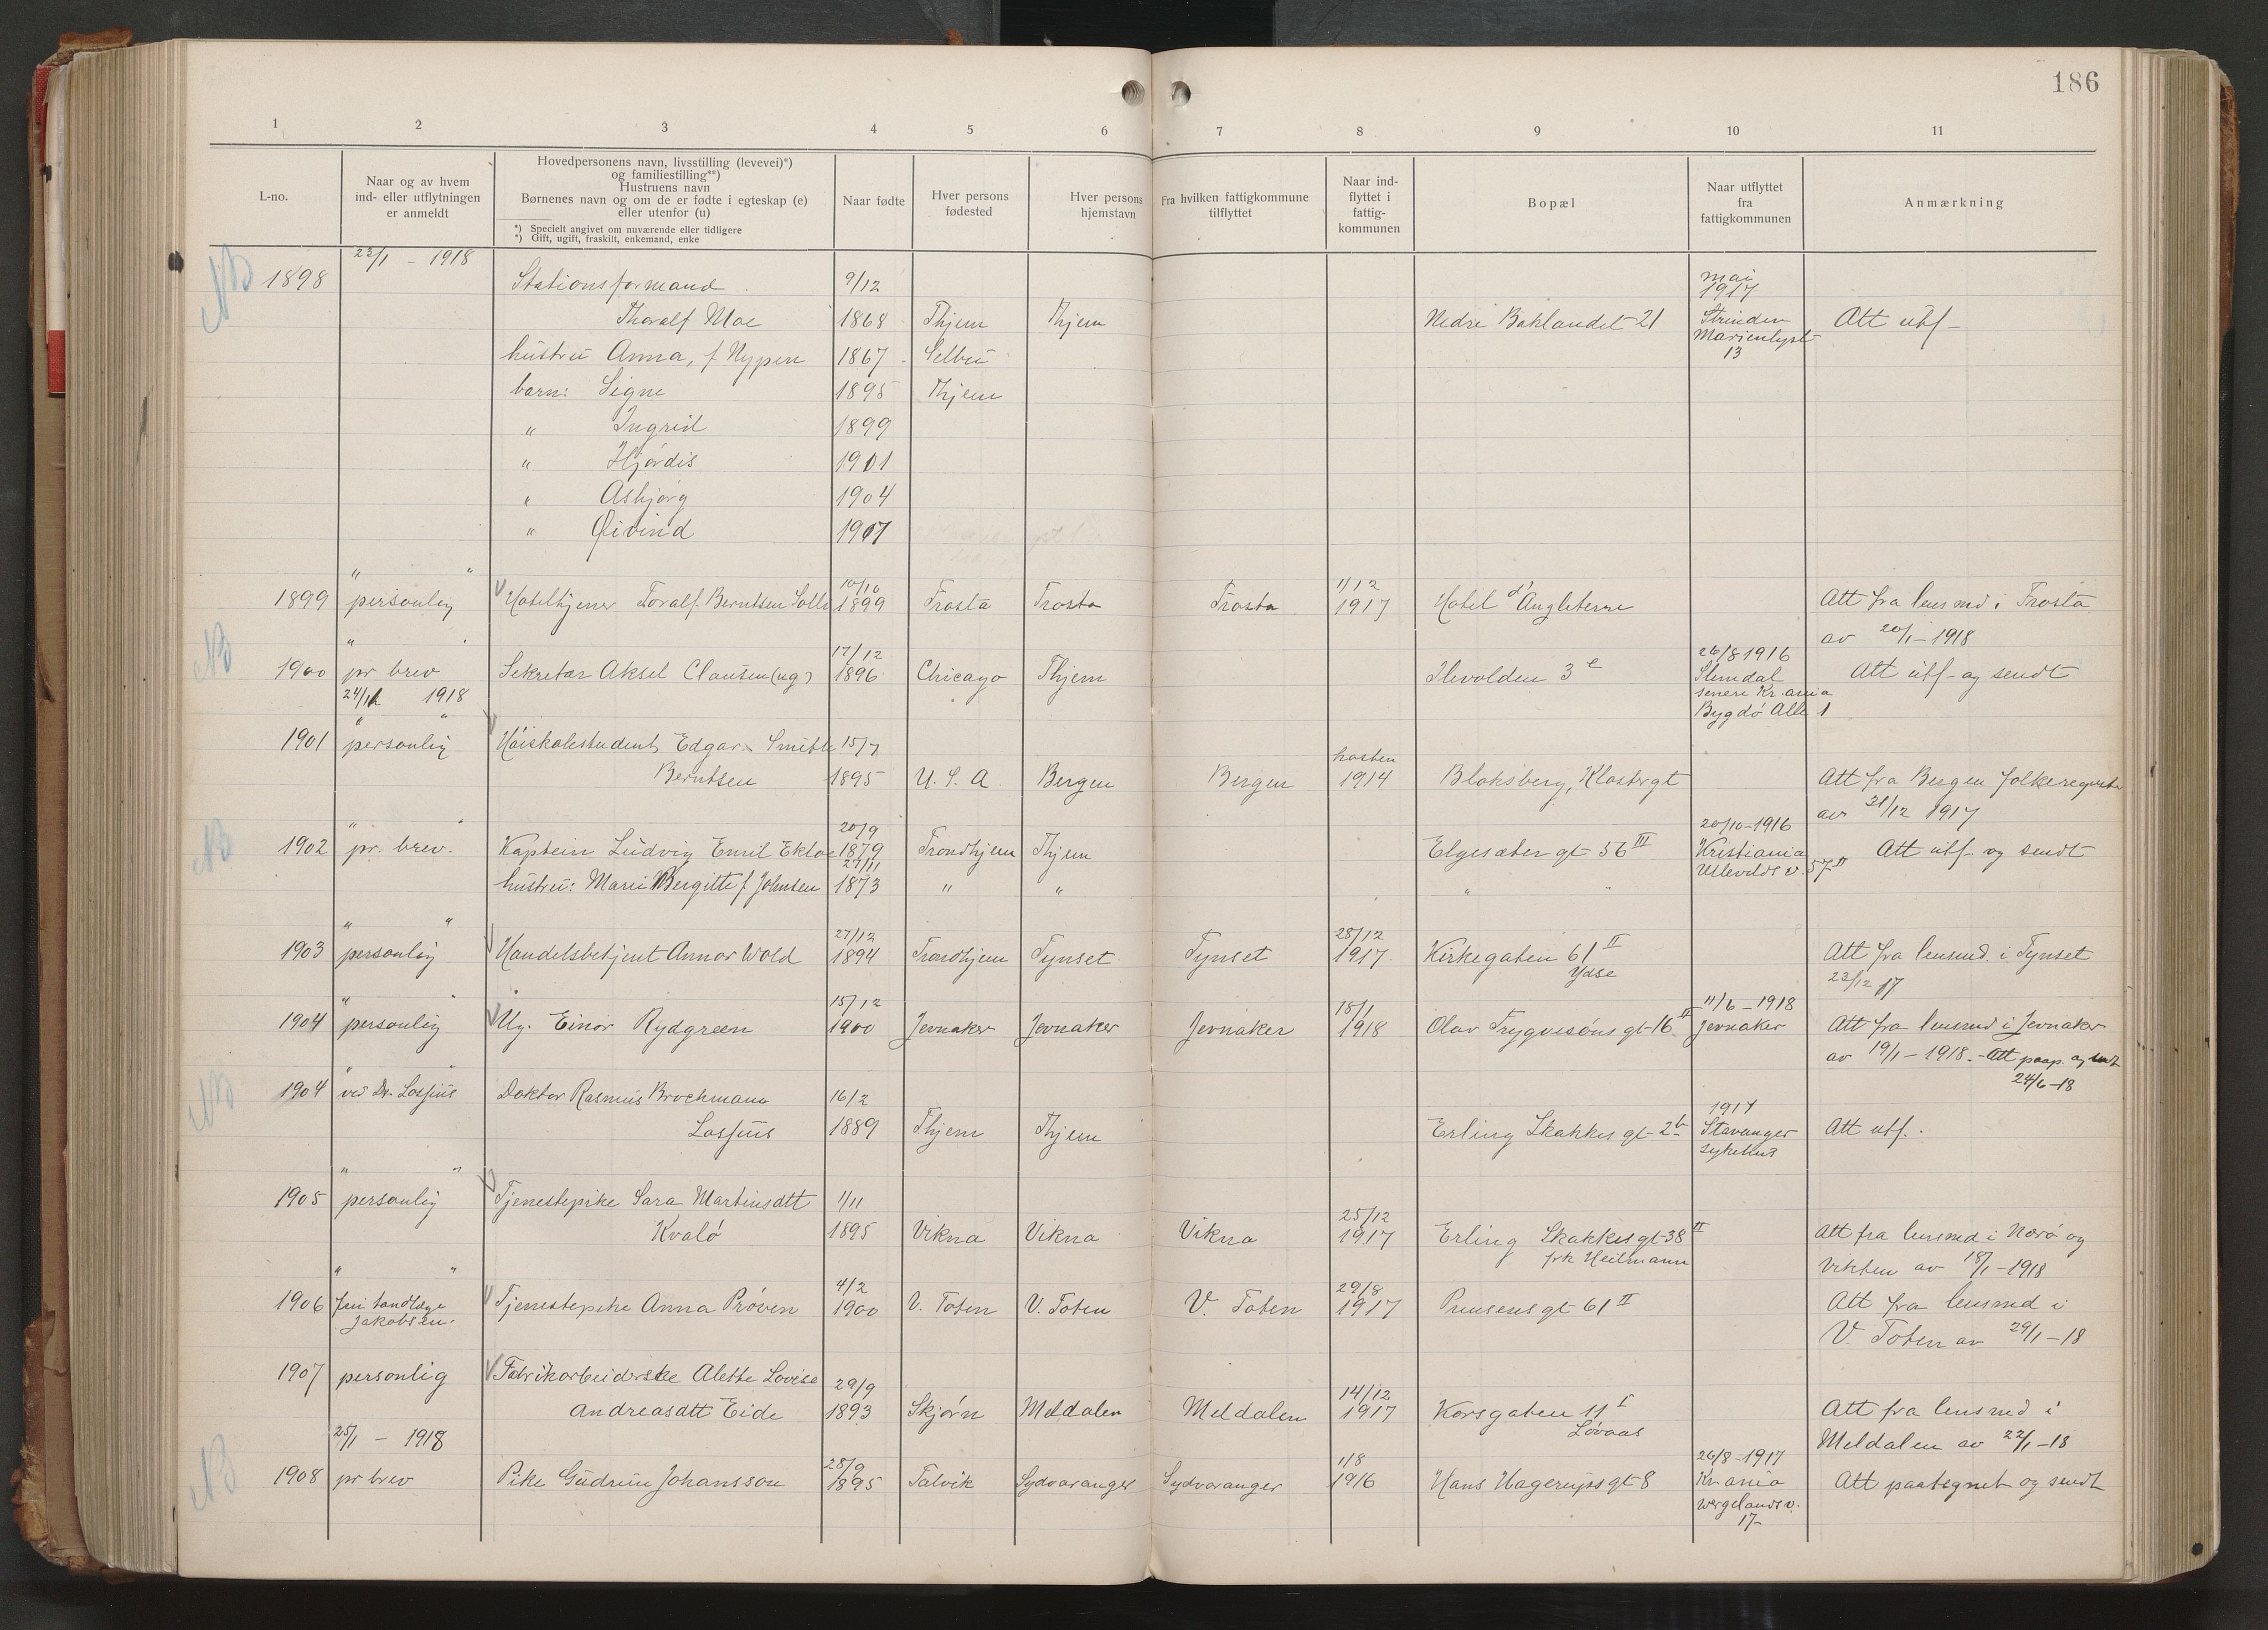 186
1 2 3 4 5 6 7 8 9 10 11
L-no.
Naar og av hvem
ind- eller utflytningen
er anmeldt
Hovedpersonens navn, livsstilling (levevei)*)
og familiestilling**)
Hustruens navn
Børnenes navn og om de er fødte i egteskap (e)
eller utenfor (u)
*) Specielt angivet om nuværende eller tidligere
*) Gift, ugift, fraskilt, enkemand, enke
Naar fødte
Hver persons
fødested
Hver persons
hjemstavn
Fra hvilken fattigkommune
tilflyttet
Naar ind-
flyttet i
fattig-
kommunen
Bopæl
Naar utflyttet
fra
fattigkommunen
Anmærkning
23/1 - 1918
NB 1898 Stationsformand 9/12 mai 1917
Thoralf Moe 1868 Thjem Thjem Nedre Baklandet 21 Strinden Att utf-
Marienlyst
13
hustru Anna, f Nypen 1867 Selbu
barn: Signe 1895 Thjem
" Ingrid 1899
" Hjørdis 1901
" Asbjørg 1904
" Øivind 1907
" "
1899 personlig Hoteltjener Toralf Berntsen 10/10 1899 Frosta Frosta Frosta 1/12 1917 Hotel d'Angleterre Att fra lensmd i Frosta
av 20/1-1918
" "
NB 1900 pr brev Sekretær Aksel Clausen (ug) 17/12 1896 Chicago Thjem Ilevolden 3 e 26/8 1916 Slemdal Att utf- og sendt
senere Kr.ania
Bygdø Alle 1
24/1 1918
" "
1901 personlig Høiskolestudent Edgar Smith 15/7
Berntsen 1895 U.S.A Bergen Bergen høsten 1914 Bloksberg, Klostergt Att fra Bergen folkeregister
av 21/12 1917
" "
NB 1902 pr. brev. Kaptein Ludvig Emil 20/9 1879 Trondhjem Thjem Elgesæter gt 56 III 20/10-1916 Kristiania Att utf- og sendt
57 II
hustru: Marie Bergitte f Johnsen 27/11 1873 " " " "
" "
1903 personlig Handelsbetjent Annar Wold 27/12 1894 Trondhjem Tynset Tynset 28/12 1917 Kirkegaten 61 II Att fra lensmd. i Tynset
Ydse 23/12 17
" "
1904 personlig Ug. Einar Rydgreen 15/12 1900 Jevnaker Jevnaker Jevnaker 18/1 1918 Olav Trygvesøns gt 16 II 11/6-1918 Jevnaker Att fra lensmd i Jevnaker
av 19/1-1918.- Att paap. og sendt
24/6-18
" "
NB 1904 ved Dr. Lossius Doktor Rasmus Brochmann 16/2
Lossius 1889 Thjem Thjem Erling Skakkes gt 2b 1917 Stavanger Att utf.
sykehus
" "
1905 personlig Tjenestepike Sara Martinsdtt 1/11
Kvalø 1895 Vikna Vikna Vikna 25/12 1917 Erling Skakkes gt 38 II Att fra lensmd i Nærø og
frk Heilmann Vikten av 18/1-1918
" "
1906 Tandlæge Tjenestepike Anna Prøven 4/2 1900 V. Toten V. Toten V. Toten 29/8 1917 61 II Att fra lensmd i
Jakobsen. V. Toten av 29/1-18
1907 personlig Fabrikarbeiderske Alette Lovise 29/9
Andreasdtt Eide 1893 Skjørn Meldalen Meldalen 14/12 1917 Korsgaten 11 I Att fra lensmd i
Løvaas Meldalen av 22/1-18
25/1 - 1918
NB 1908 pr brev Pike Gudrun Johansson 28/9 1895 Talvik Sydvaranger Sydvaranger 1/8 1916 Hans Hagerups gt 8 26/8-1917 Kr.ania Att paategnet og sendt
Wergelandsv.
17-